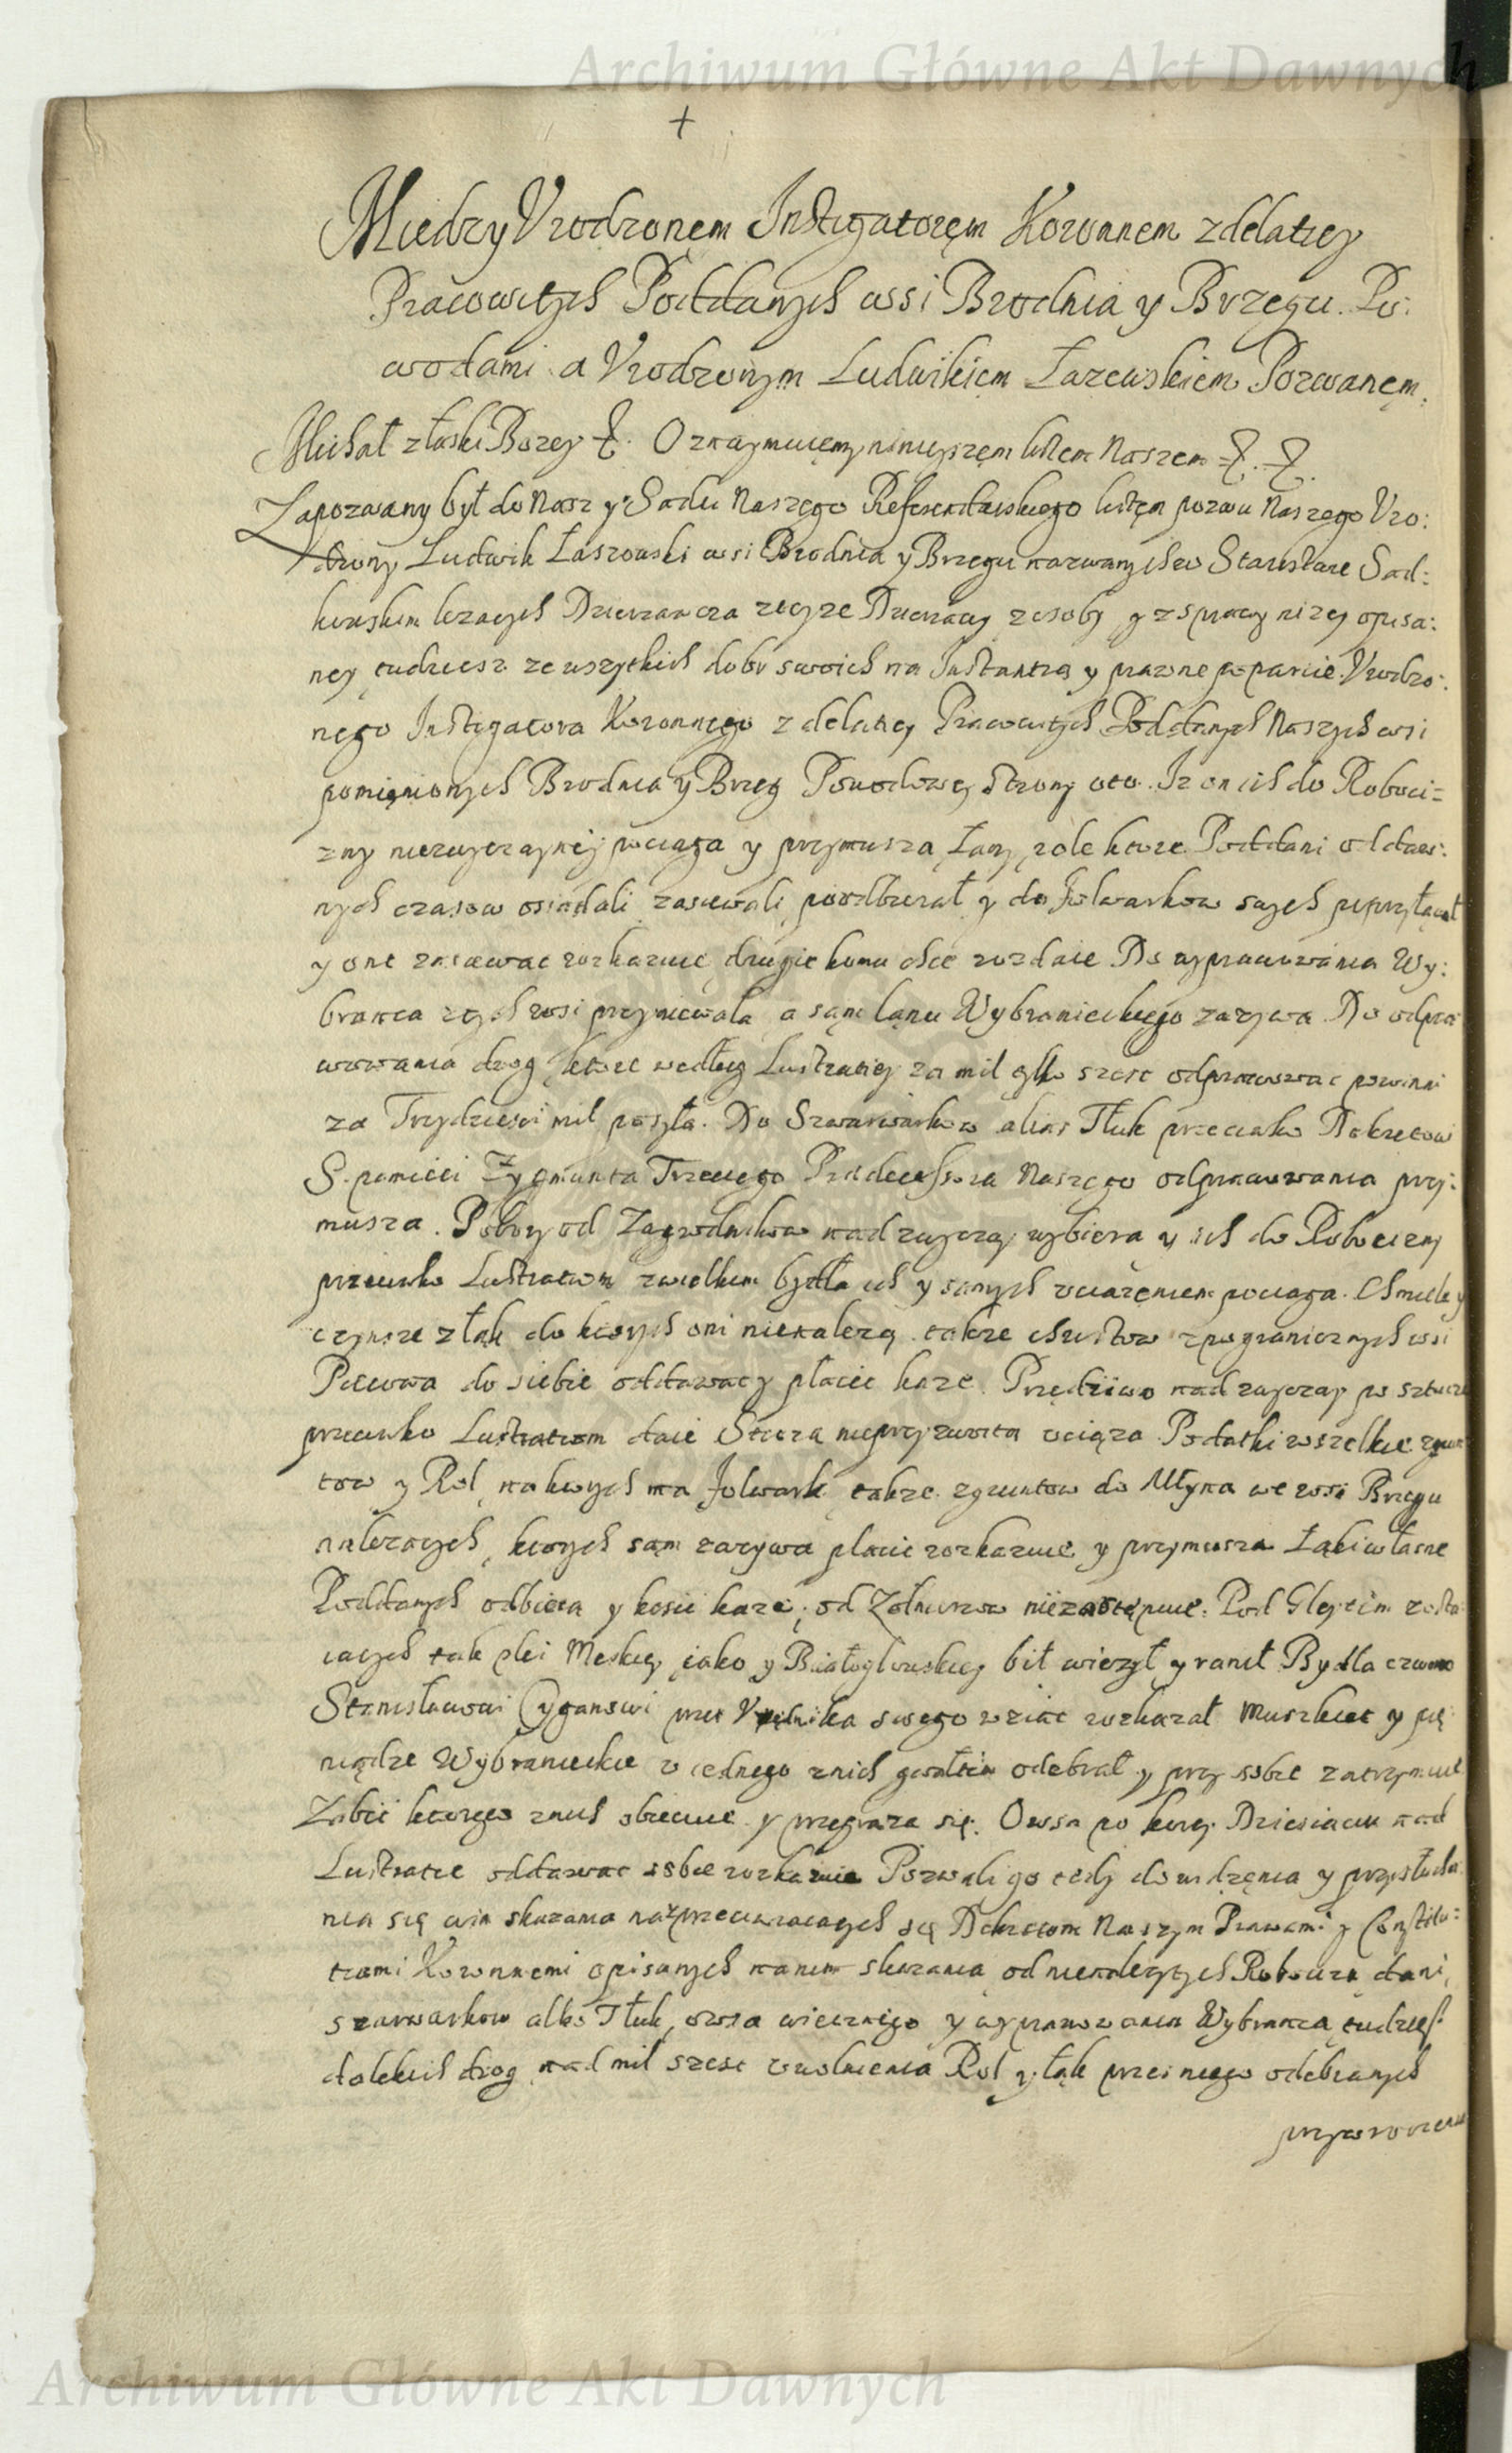 Archiwum Główne Akt Dawnych
+
Między Vrodzonęm Instigatoręm Koronnem z delatiey
Pracowitych Poddanych wsi Brodnia y Brzegu Po:
wodami a Vrodzonym Ludwikięm Łazewskiem Pozwanęm.
Michał z łaski Bozey &. Oznaymuięmy ninieyszęm listem Naszem &. &.
Zapozwany był do Nasz y Sadu Naszęgo Referendarskiego listęm pozwu Naszego Vro:
dzony Ludwik Łaszowski wsi Brodnia y Brzegu nazwanych w Starostwie
lezących Dzierzawca z teyze Dzierzawy z osoby y z sprawy nizey opisa:
ney tudziesz ze wszytkich dobr swoich na Instantią y prawne poparcie Vrodzo:
nęgo Instigatora Koronnęgo z delatiey Pracowitych Poddanych Naszych wsi
pomięnionych Brodnia y Brzeg Powodowey strony oto. Iz on ich do Roboci=
zny niezwyczayney pociąga y przymusza, Łany, role ktore Poddani od daw:
nych czasow osiadali, zasiewali, poodbierał y do folwarkow swych
y one zasiewac rozkazuie, drugie komu chce rozdaie Do wyprawowania Wy:
branca z tych wsi przyniewala, a sąm łanu Wybranieckiego zazywa Do odpra
wowania drog, ktore według Lustratiey za mil tylko szesc odprawowac powinni
za Trzydziesci mil posyła. Do Szarwarkow alias Tłuk przeciwko Dekretow
S. pamięci Zygmunta Trzeciego Praedecessora Naszęgo odprawowania przy:
musza. Pobory od Zagrodnikow nad zwyczay wybiera y ich do Robocizny
przeciwko Lustratiom z wielkim bydła ich y samych vciązęniem pociąga. Chmiele y
czynsze z łąk do ktorych oni nienalezą, takze z pogranicznych wsi
do siebie oddawac y płacic kaze. Przędziwo nad zwyczay po sztuce
przeciwko Lustratiom daie Stroza nieprzyzwoita vciąza Podatki wszelkie z grun
tow y Rol, na ktorych ma folwark, takze z gruntow do Młyna we wsi Brzegu
nalezących, ktorych sąm zazywa płacic rozkazuie y przymusza Łąki własne
Poddanych odbiera y kosic kaze, od Zołnierzow niezastępuie. Pod Gleytem zosta
iacych tak płci Męskiey iako y Białogłowskiey bił więził y ranił Bydła czworo
Stanisławowi Cyganowi przez Vrzędnika swego wziac rozkazał Muszkiet y pię
niądze Wybranieckie v iednego z nich gwałtem odebrał y przy sobie zatrzymuie
Zabic ktorego z nich obiecuie y przegraza się. Owsa po korcy Dziesiąciu nad
Lustratie oddawac sobie rozkazuie Pozwali go tedy do widzęnia y przysłucha
nia się win skazania na przeciwiaiących się Dekretom Naszym Prawami y Constitu:
tiami Koronnemi opisanych na nim skazania, od nienalezytych Robocizn, dani,
szarwarkow albo Tłuk, owsa wiecznego y wyprawowania Wybranca, tudziesz
dalekich drog nad mil szesc vwolnienia Rol y łąk przez niego odebranych
przywroceni
Archiwum Główne Akt Dawnych